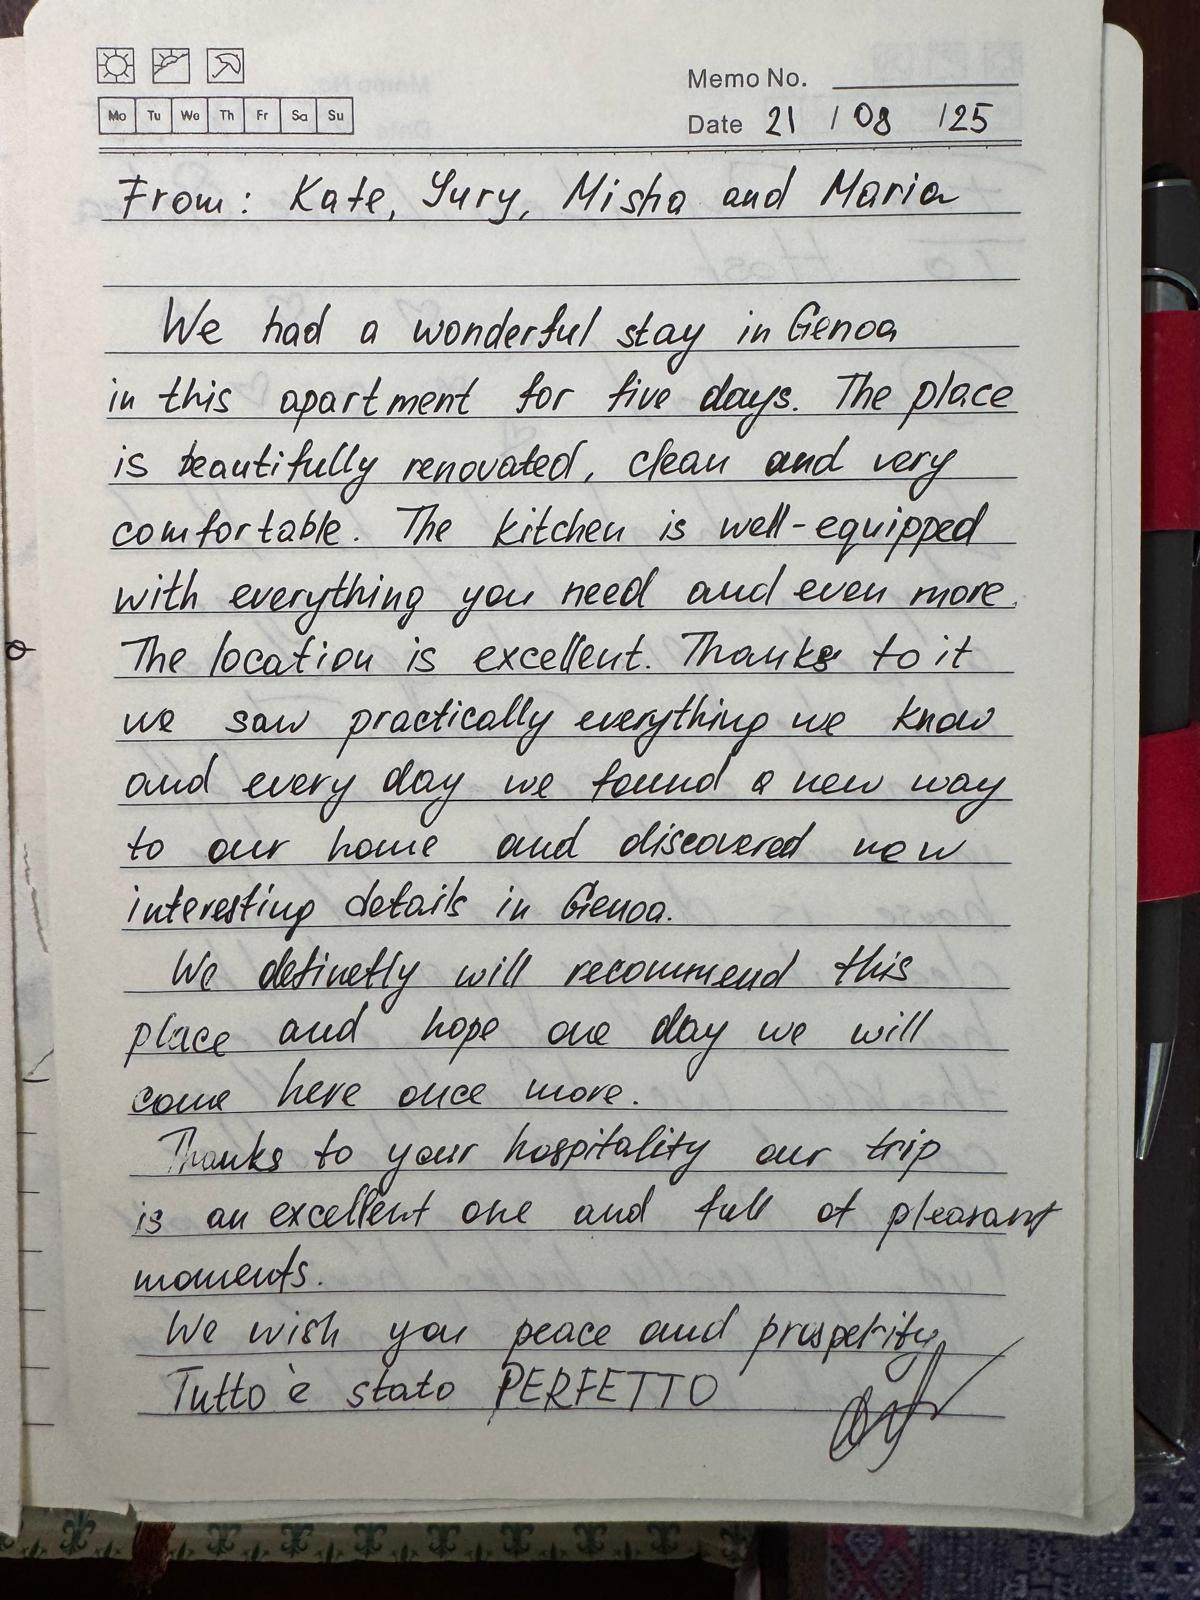 Memo No.
Mo Tu We Th Fr Sa Su
Date 21 / 08 / 25
From: Kate, Yury, Misha and Maria
We had a wonderful stay in Genoa
in this apartment for five days. The place
is beautifully renovated, clean and very
comfortable. The kitchen is well-equipped
with everything you need and even more.
The location is excellent. Thanks to it
we saw practically everything we know
and every day we found a new way
to our home and discovered new
interesting details in Genoa.
We definetly will recommend this
place and hope one day we will
come here once more.
Thanks to your hospitality our trip
is an excellent one and full of pleasant
moments.
We wish you peace and prosperity
Tutto è stato PERFETTO